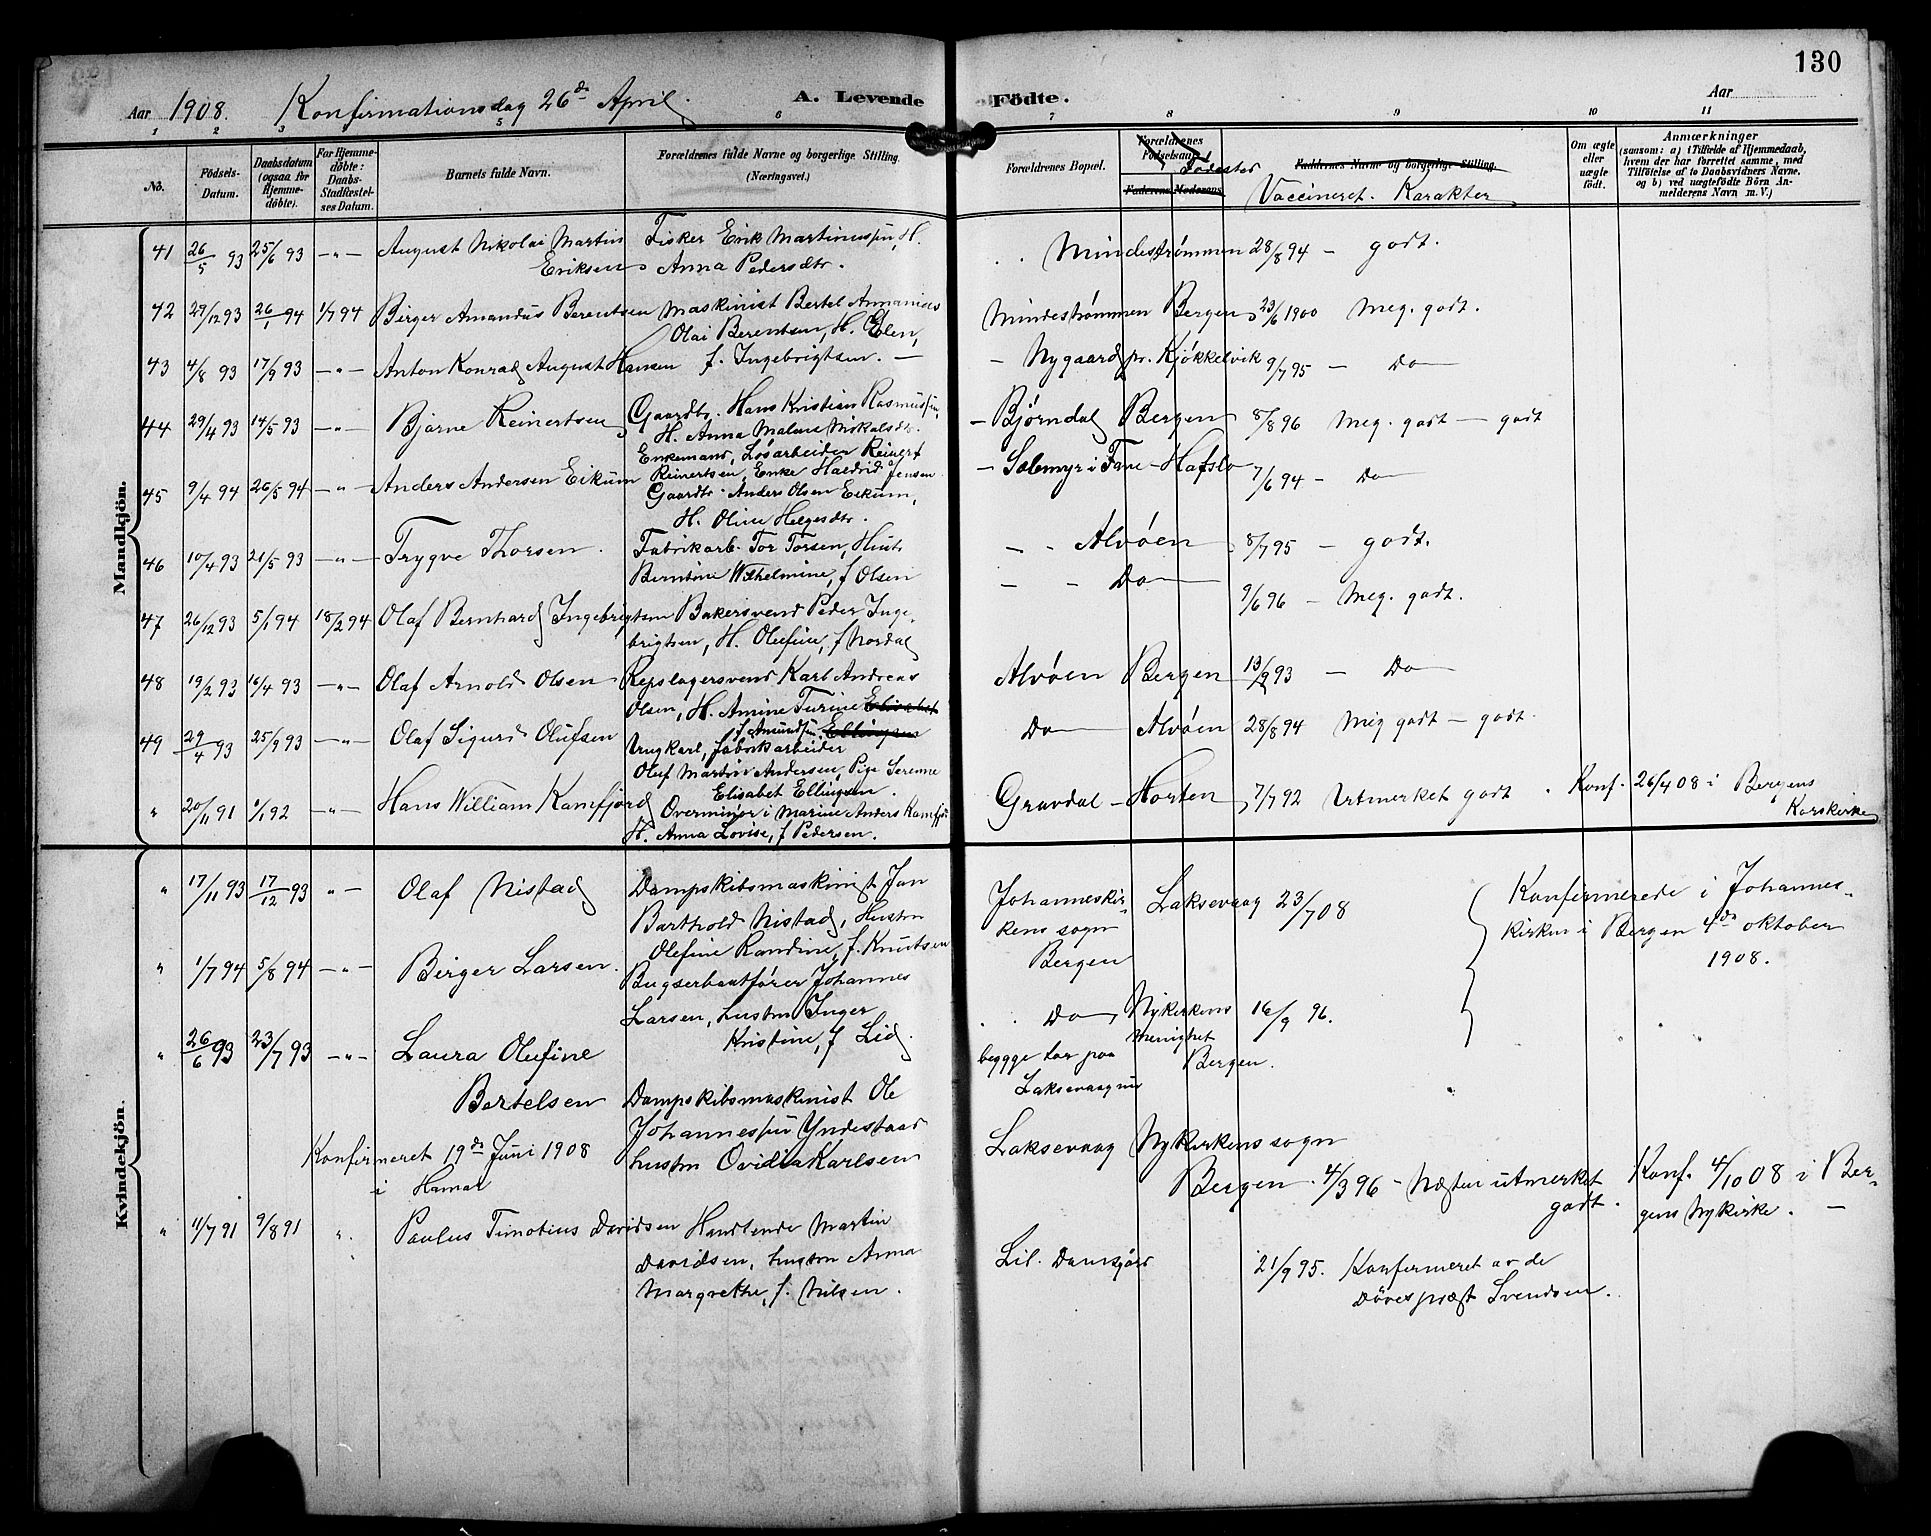 130
Aar 1908. Konfirmationsdag 26de April. A. Levende Födte. Aar
1 2 3 5 6 7 8 9 10 11
No.
Födsels-Datum.
Daabsdatum (ogsaa for Hjemmedöbte).
For Hjemmedöbte: Daabs-Stadfæstelses Datum.
Barnets fulde Navn.
Forældrenes fulde Navne og borgerlige Stilling.
(Næringsvei.)
Forældrenes Bopæl.
Forældrenes Födselsaar
Faderens Moderens
Födested
Faddernes Navne og borgerlige Stilling.
Vaccineret. Karakter
Om ægte eller uægte födt.
Anmærkninger
(saasom: a) i Tilfælde af Hjemmedaab, hvem der har forrettet samme, med Tilföielse af to Daabsvidners Navne, og b) ved uægtefödte Börn Anmelderens Navn m. V.)
Mandkjön.
41 26/5 93 25/6 93 -"- August Nikolai Martin Fisker Erik Martinussen, H. . . Mindeströmmen 28/8 94 - godt.
Eriksen Anna Pedersdtr.
42 29/12 93 26/1 94 1/7 94 Birger Amandus Berentsen Maskinist Bertel Annanias Mindeströmmen Bergen 23/6 1900 Meg. godt.
Olai Berentsen, H. Elen,
43 4/8 93 17/9 93 -"- Anton Konrad August Hansen f. Ingebrigtsen. - - Nygaard pr. Kjøkkelvik 9/7 95 - Do
44 29/4 93 14/5 93 -"- Bjarne Reinertsen Gaardbr. Hans Kristian Rasmussen, - Björndal Bergen 8/8 96 Meg. godt - godt
H. Anna Malene Nikolaisdtr.
Enkemand, Lösarbeider Reinert
45 9/4 94 26/5 94 -"- Anders Andersen Eikum Reinertsen, Enke Haldrid Jensen - Sælemyr i Fane - Hafslo 7/6 94 - Do
Gaardbr. Anders Olsen Eikum,
H. Oline Helgesdtr.
46 10/4 93 21/5 93 -"- Trygve Thorsen. Fabrikarb. Tor Torsen, Hustr. - - Alvøen 8/7 95 - godt.
Berntine Wilhelmine, f Olsen - - Do
9/6 96 - Meg. godt.
47 26/12 93 5/1 94 18/2 94 Olaf Bernhard Ingebrigtsen Bakersvend Peder Inge-
brigtsen, H. Olufine, f Nordal
48 19/2 93 16/4 93 -"- Olaf Arnold Olsen Repslagersvend Karl Andreas Alvøen Bergen 13/9 93 - Do
Olsen, H. Amine Turine
f. Amundsen, Ellingsen
49 29/4 93 25/9 93 -"- Olaf Sigurd Olufsen Ungkarl, fabrikarbeider Do Alvøen 28/8 94 Meg godt - godt.
Oluf Martin Andersen, Pige Serenne
Elisabet Ellingsen.
" 20/11 91 1/1 92 -"- Hans William Kamfjord Overminör i Marine Anders Kamfjo Gravdal - Horten 7/7 92 Utmerket godt. Konf. 26/4 08 i Bergens
H. Anna Lovise, f Pedersen. Korskirke
Kvindekjön.
" 17/11 93 17/12 93 "- Olaf Nistad Dampskibsmaskinist Jan Johanneskir- Laksevaag 23/7 08 Konfirmerede i Johannes-
Barthold Nistad, Hustru kens sogn kirken i Bergen 4de oktober
Olefine Randine, f. Knutsen Bergen 1908.
" 1/7 94 5/8 94 -"- Birger Larsen. Bugserbaatförer Johannes
Larsen, hustru Inger . . Do Nykirkens 16/9 96.
Kristine, f Lid. menighet
" 26/6 93 23/7 93 -"- Laura Olufine beggge bor paa Bergen.
Laksevaagen
Bertelsen Dampskibsmaskinist Ole
Johannessen Yndestaad Laksevaag Nykirkens sogn
Konfirmeret 19de Juni 1908 hustru Ovidia Karlsen Bergen. 4/3 96 - Næsten utmerket Konf. 4/10 08 i Ber-
i Hamar godt. gens Nykirke. -
" 11/7 91 9/8 91 ". Paulus Timotius Davidsen Handlende Martin
Davidsen, hustru Anna Lil. Damsgård 21/9 95. Konfirmeret av de
Margrethe, f. Nilsen. Döves prest Svendsen.